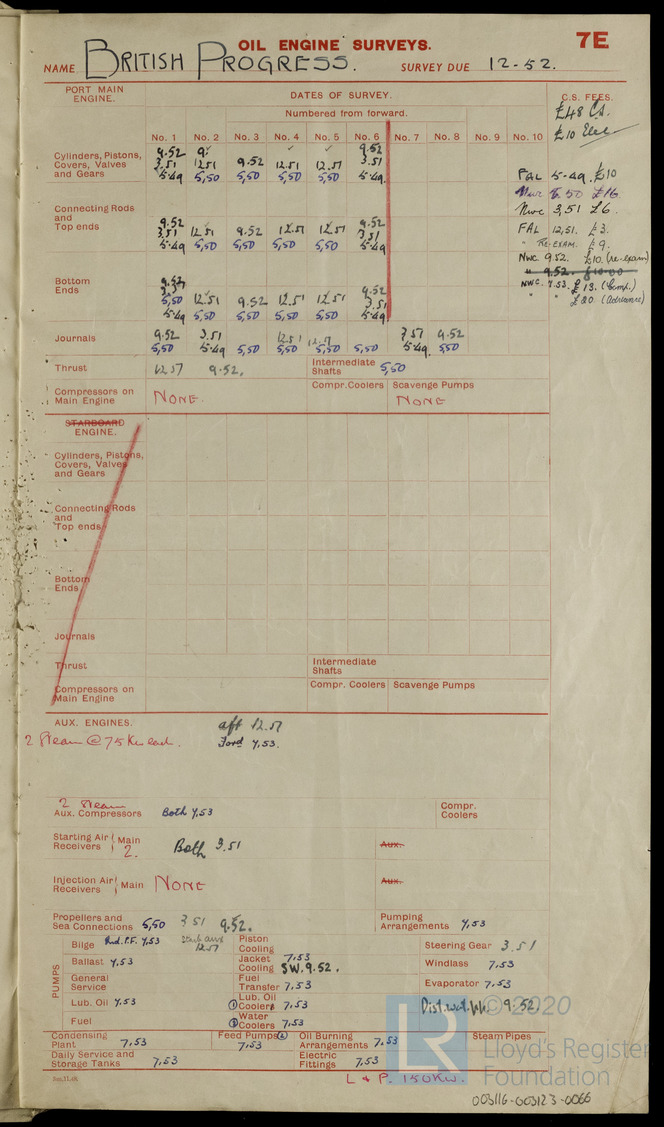 OIL ENGINE SURVEYS. 7E
NAME BRITISH PROGRESS. SURVEY DUE 12-52.
PORT MAIN ENGINE. DATES OF SURVEY. C.S. FEES.
Numbered from forward. £48 C.S.
£10 Elec
No. 1 No. 2 No. 3 No. 4 No. 5 No. 6 No. 7 No. 8 No. 9 No. 10
Cylinders, Pistons, 9.52 9.52
Covers, Valves 3.51 12.51 9.52 12.51 12.51 3.51
and Gears 5.49 5,50 5,50 5,50 5,50 5.49
FAL 5.49. £10
Nwc 5.50 £16
Nwc 3,51 £6.
FAL 12,51. £3.
" RE-EXAM. £9.
NWC 9.52. £10. (re-exam)
" 9.52. £10.00
NWC. 7.53. £13. (Comp.)
" " £20. (Advance)
Connecting Rods 9.52 9.52
and 3,51 12.51 9.52 12.51 12.51 3.51
Top ends 5.49 5,50 5,50 5,50 5,50 5.49
Bottom
Ends 5,50 12.51 9.52 12.51 12.51 9.52 3.51
5.49 5,50 5,50 5,50 5,50 5.49
Journals 9.52 3.51 12.51 12.51 3.51 9.52
5,50 5.49 5,50 5,50 5,50 5,50 5.49. 5,50
Thrust 12.51 9.52. Intermediate Shafts 5,50
Compressors on Main Engine NONE. Compr. Coolers Scavenge Pumps NONE
STARBOARD
ENGINE.
Cylinders, Pistons,
Covers, Valves
and Gears
Connecting Rods
and
Top ends
Bottom
Ends
Journals
Thrust Intermediate Shafts
Compressors on Main Engine Compr. Coolers Scavenge Pumps
AUX. ENGINES. aft 12.51
2 Steam @ 75 Kw each. Forw 7,53.
2 Steam
Aux. Compressors Both 7,53 Compr. Coolers
Starting Air Receivers Main 2. Both 3.51 Aux.
Injection Air Receivers Main NONE Aux.
Propellers and Sea Connections 5,50 3.51 9.52. Pumping Arrangements 7,53
PUMPS
Bilge 7,53 12.51 Piston Cooling Steering Gear 3.51
Ballast 7,53 Jacket Cooling 7,53 SW. 9.52. Windlass 7,53
General Service Fuel Transfer 7,53 Evaporator 7,53
Lub. Oil 7,53 Lub. Oil Coolers 7,53 9.52.
Fuel Water Coolers 7,53
Condensing Plant 7,53 Feed Pumps 7,53 Oil Burning Arrangements 7,53 Steam Pipes
Daily Service and Storage Tanks 7,53 Electric Fittings 7,53
L & P. 150 KW.
© 2020
LR
Lloyd's Register
Foundation
003116-003123-0066